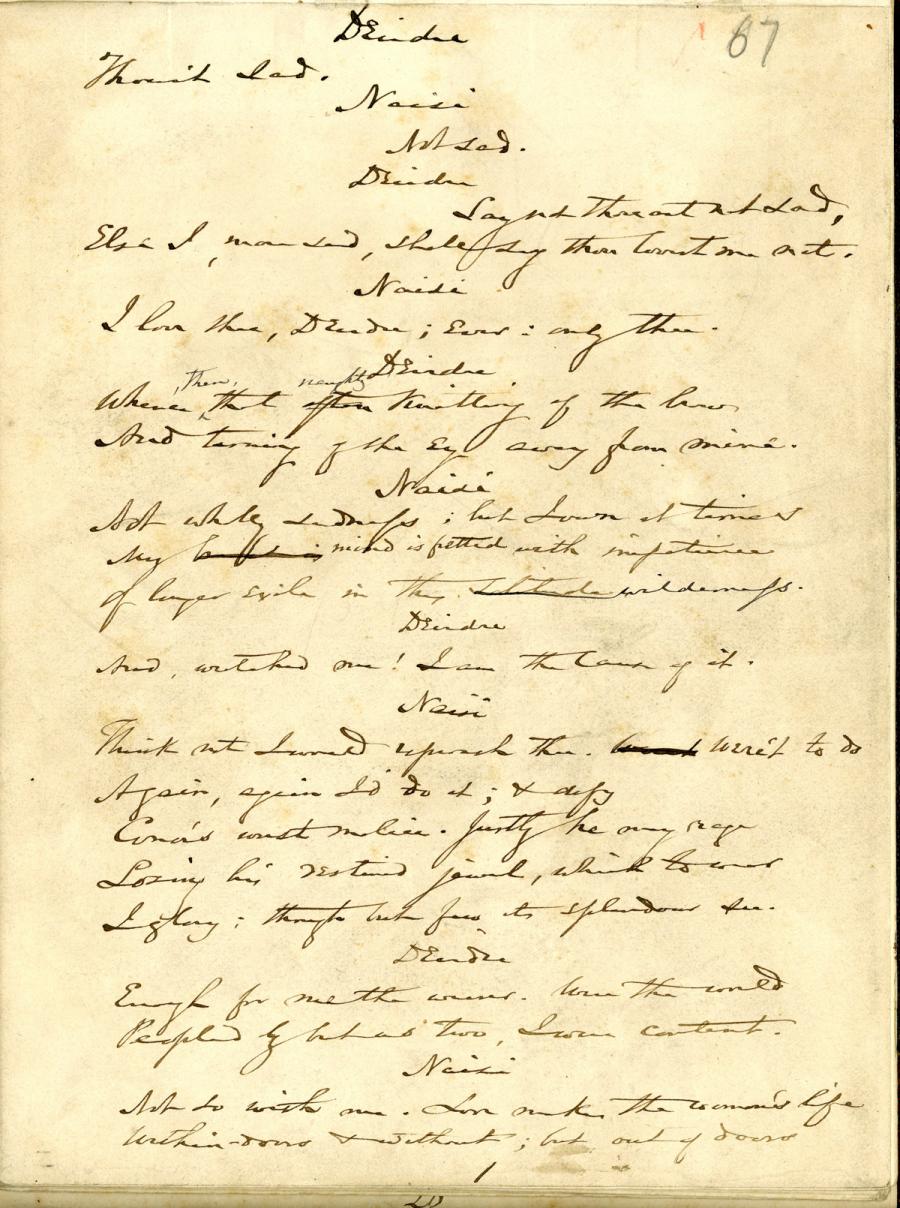 67
Deirdre
Thou'rt sad.
Naisi
Not sad.
Deirdre
Say not thou art not sad,
Else I, more sad, shall say thou lovest me not.
Naisi
I love thee, Deirdre; Ever: only thee.
Deirdre
, then, naughty
Whence that often Knitting of the brow
And turning of the Eye away from mine.
Naisi
Not wholly sadness; but I own at times
My mind is fretted with impatience
Of longer Exile in this solitude wilderness.
Deirdre
And, wretched me! I am the Cause of it.
Naisi
Think not I would reproach thee. Were't to do
Again, again I'd do it; & defy
Conor's worst malice. Justly he may rage
Losing his destined jewel, which to wear
I glory; though but few its splendour see.
Deirdre
Enough for me the wearer. Were the world
Peopled by but us two, I were content.
Naisi
Not so with me. Love makes the woman's life
Within-doors & without; but out of doors